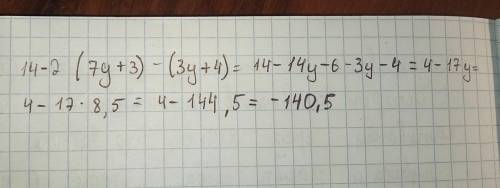 14-2 (7y+3) - (3y+4) = 14-14y-6-3y-4 = 4-17y=
4-17·8,5 = 4-144,5 = -140,5